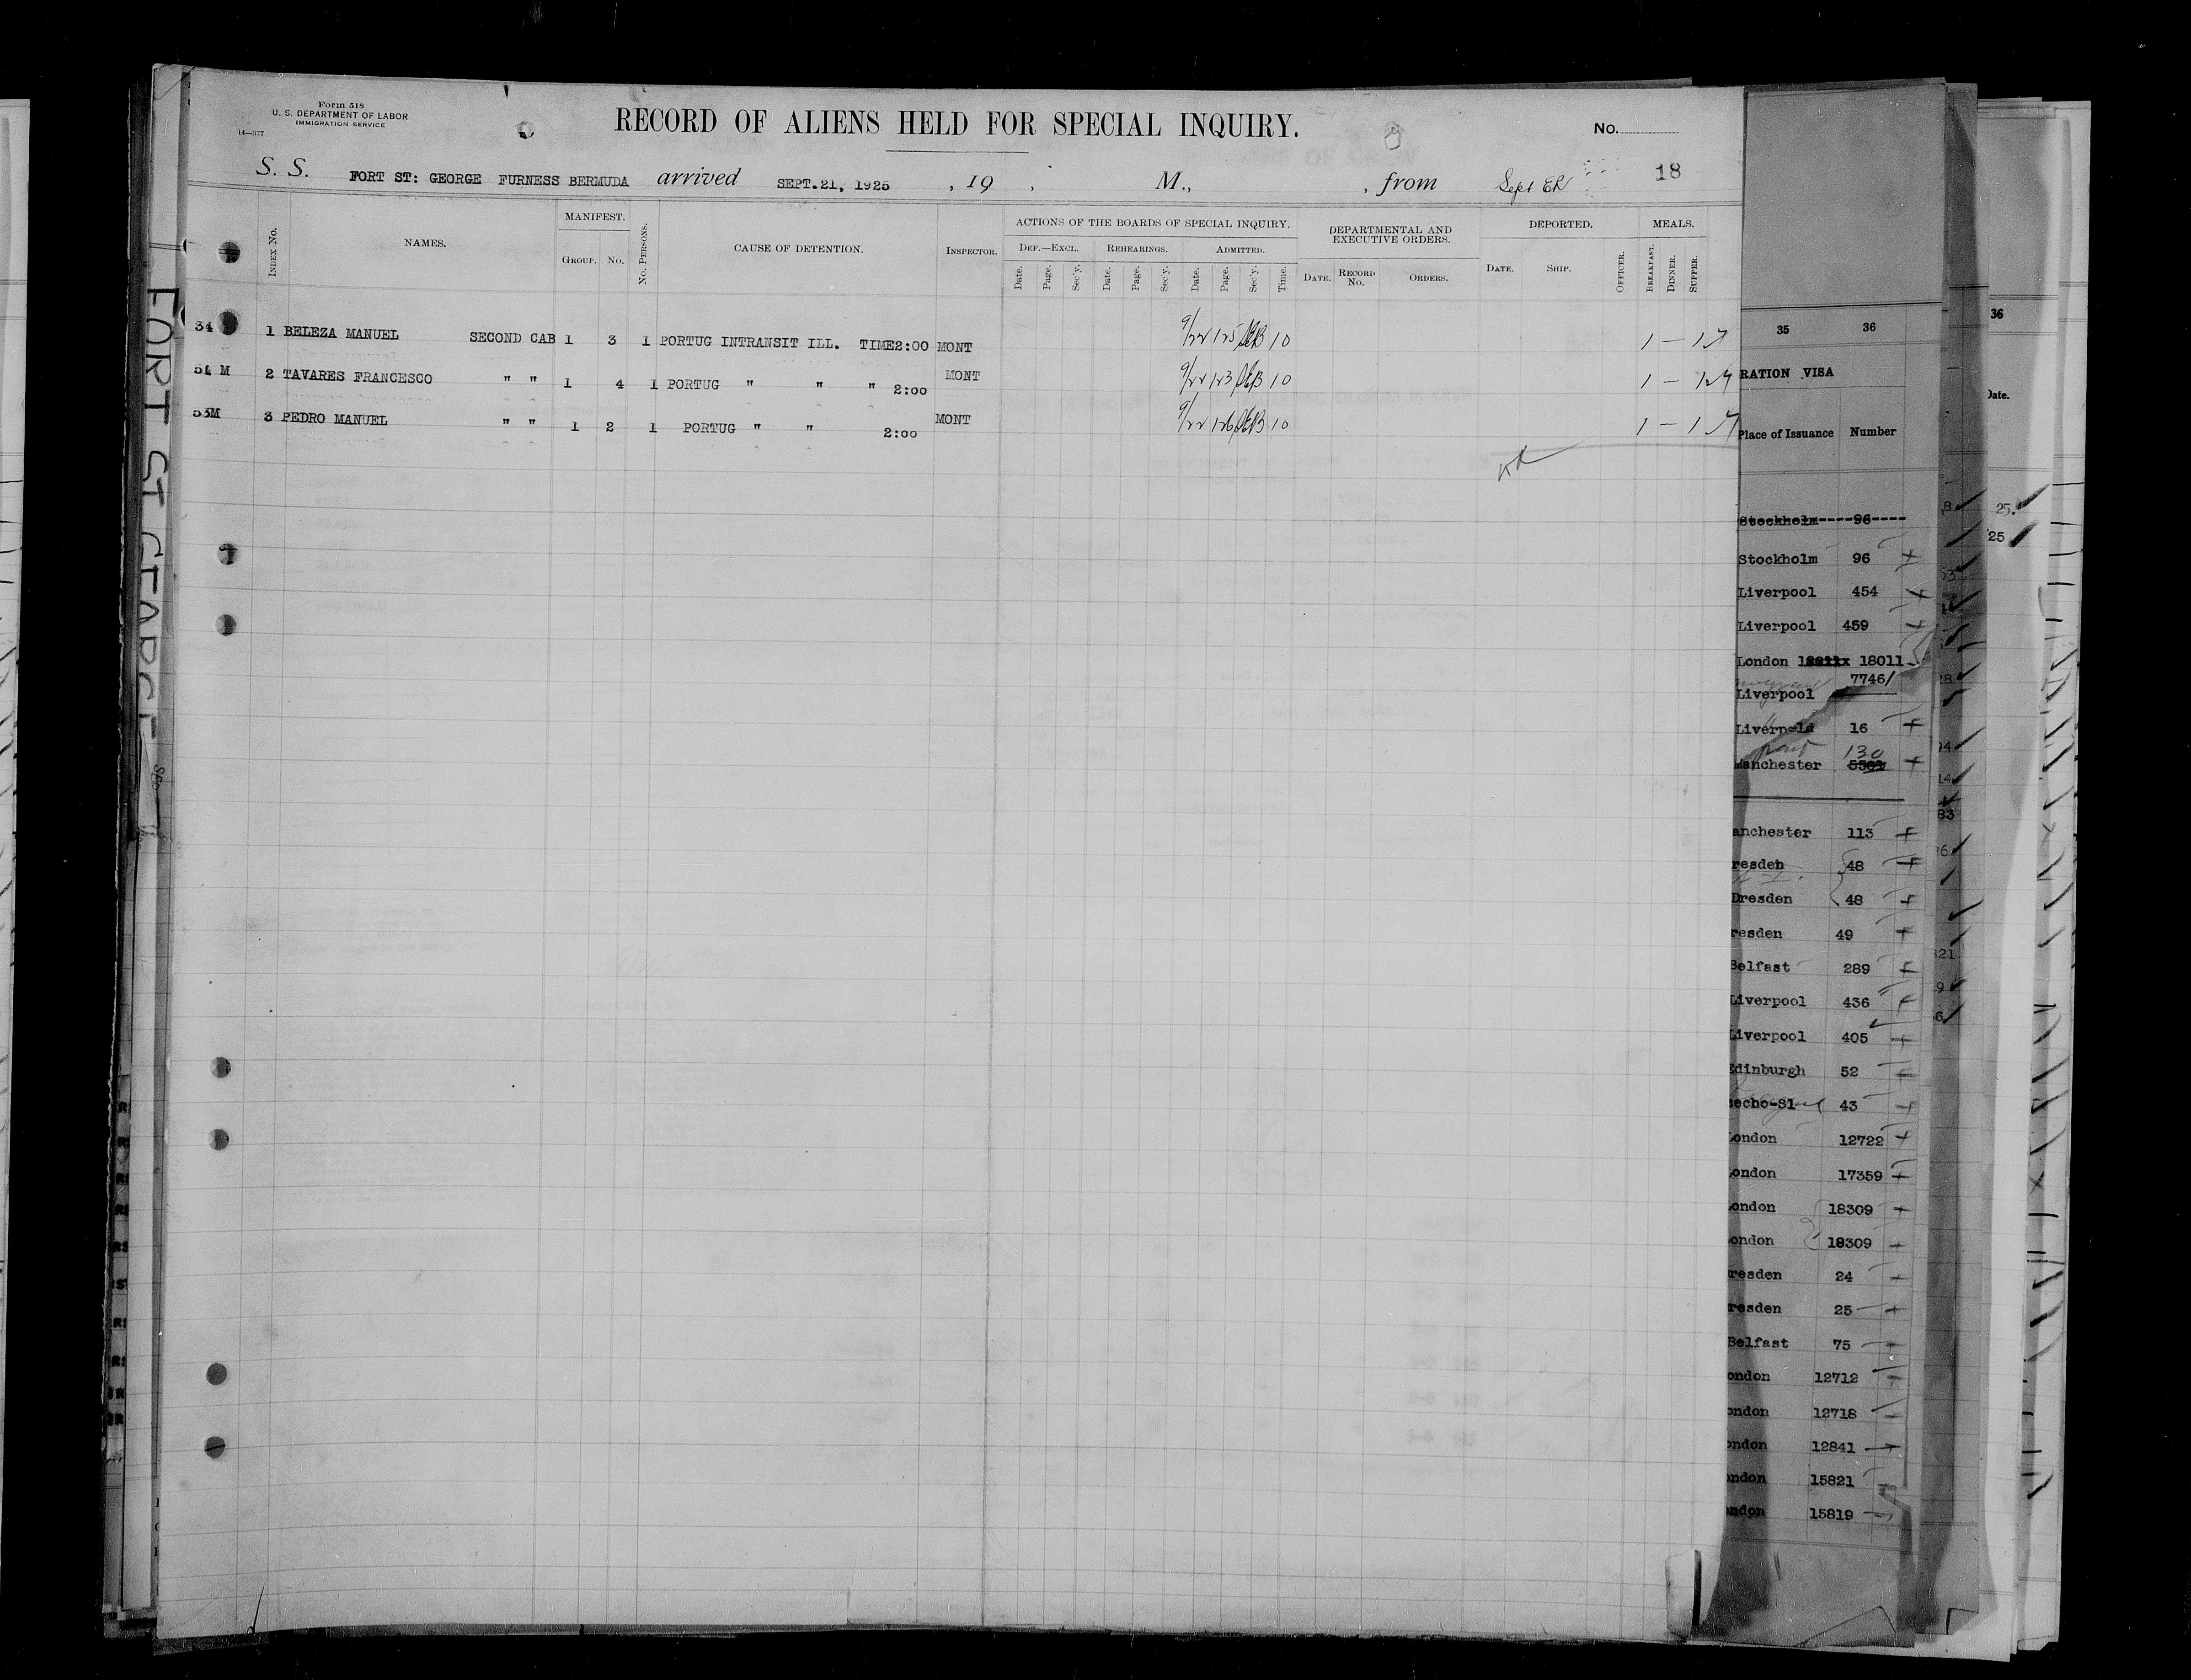 Form 518
U. S. DEPARTMENT OF LABOR
IMMIGRATION SERVICE
14—377
RECORD OF ALIENS HELD FOR SPECIAL INQUIRY.
No.
S. S. FORT ST: GEORGE FURNESS BERMUDA arrived SEPT.21, 1925 , 19 , M., , from Sept 18
INDEX No. NAMES. MANIFEST. GROUP. No. No. PERSONS. CAUSE OF DETENTION. INSPECTOR. ACTIONS OF THE BOARDS OF SPECIAL INQUIRY. DEPARTMENTAL AND EXECUTIVE ORDERS. DEPORTED. MEALS.
DEF.—EXCL. REHEARINGS. ADMITTED.
Date. Page. Sec'y. Date. Page. Sec'y. Date. Page. Sec'y. Time. DATE. RECORD No. ORDERS. DATE. SHIP. OFFICER. BREAKFAST. DINNER. SUPPER.
34 1 BELEZA MANUEL SECOND CAB 1 3 1 PORTUG INTRANSIT ILL. TIME2:00 MONT 9/22 125 10 1 — 1
M 2 TAVARES FRANCESCO " " 1 4 1 PORTUG " " " 2:00 MONT 9/22 123 10 1 —
53M 3 PEDRO MANUEL " " 1 2 1 PORTUG " " 2:00 MONT 9/22 126 10 1 — 1
FORT ST GEORGE
35 36
RATION VISA
Place of Issuance Number
Stockholm----96----
Stockholm 96
Liverpool 454
Liverpool 459
London 18011
7746/
Liverpool
16
130
Manchester
anchester 113
resden 48
Dresden 48
resden 49
Belfast 289
Liverpool 436
Liverpool 405
Edinburgh 52
echo-Sl 43
London 12722
ondon 17359
ondon 18309
ondon 18309
resden 24
resden 25
Belfast 75
ondon 12712
ondon 12718
ondon 12841
ondon 15821
ondon 15819
36
Date.
25.
25